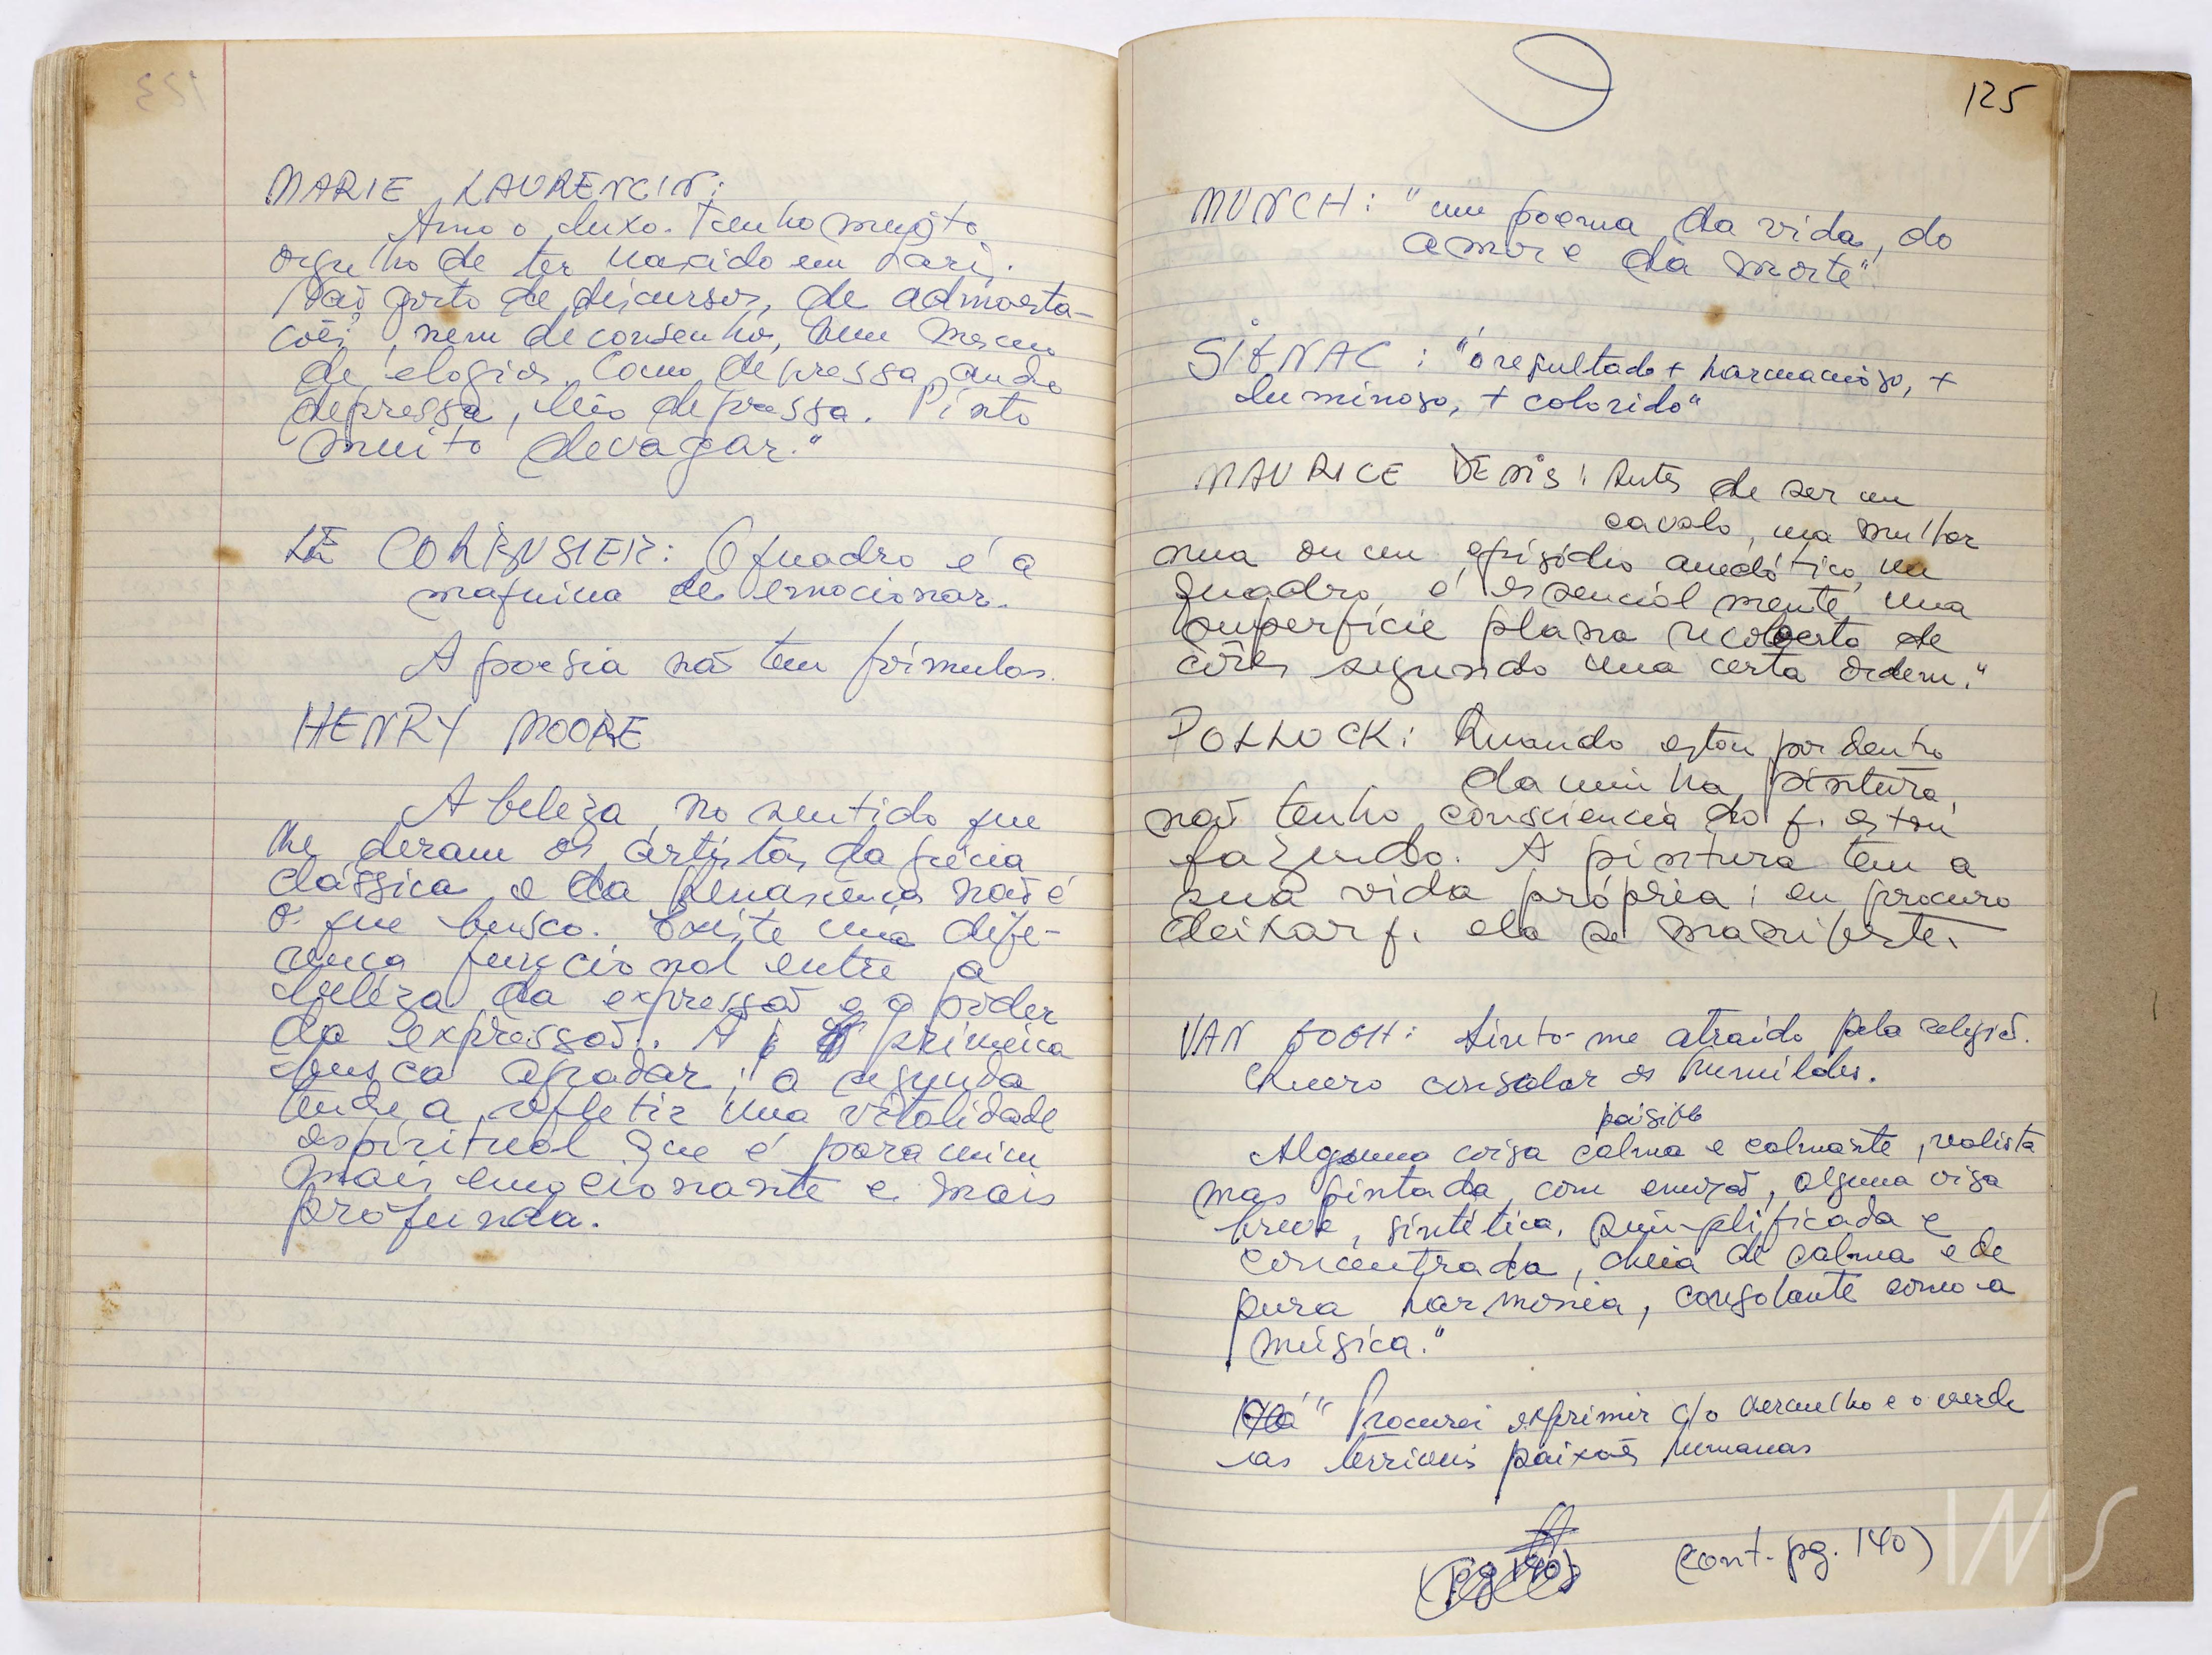 MARIE LAURENCIN:
Amo o luxo. Tenho muito
orgulho de ter nascido em Paris.
Não gosto de discursos, de admoesta-
ções, nem de conselhos, nem mesmo
de elogios. Como depressa, ando
depressa, leio depressa. Pinto
muito devagar."
LE CORBUSIER: O quadro é a
maquina de emocionar.
A poesia não tem fórmulas.
HENRY MOORE
A beleza, no sentido que
lhe deram os artistas da grécia
clássica e da Renascença não é
o que busco. Existe uma dife-
rença funcional entre a
beleza da expressão e o poder
da expressão. A primeira
busca agradar; a segunda
tende a refletir uma vitalidade
espiritual que é para mim
mais emocionante e mais
profunda.
125
MUNCH: "um poema da vida, do
amor e da morte".
SIGNAC: "o resultado + harmonioso, +
luminoso, + colorido"
MAURICE DENIS: Antes de ser um
cavalo, uma mulher
nua ou um episódio anedótico, um
quadro é essencialmente uma
superfície plana recoberta de
côres segundo uma certa ordem."
POLLOCK: Quando estou por dentro
da minha pintura,
não tenho consciencia do q. estou
fazendo. A pintura tem a
sua vida própria; eu procuro
deixar q. ela se manifeste.
VAN GOGH: Sinto-me atraído pela religião.
Quero consolar os humildes.
Alguma coisa calma e calmante, realista
mas pintada com emoção, alguma coisa
breve, sintética, simplificada e
concentrada, cheia de calma e de
pura harmonia, consolante como a
música."
" Procurei exprimir c/o vermelho e o verde
as terriveis paixões humanas
(pg 140)
(cont. pg. 140)
IMS